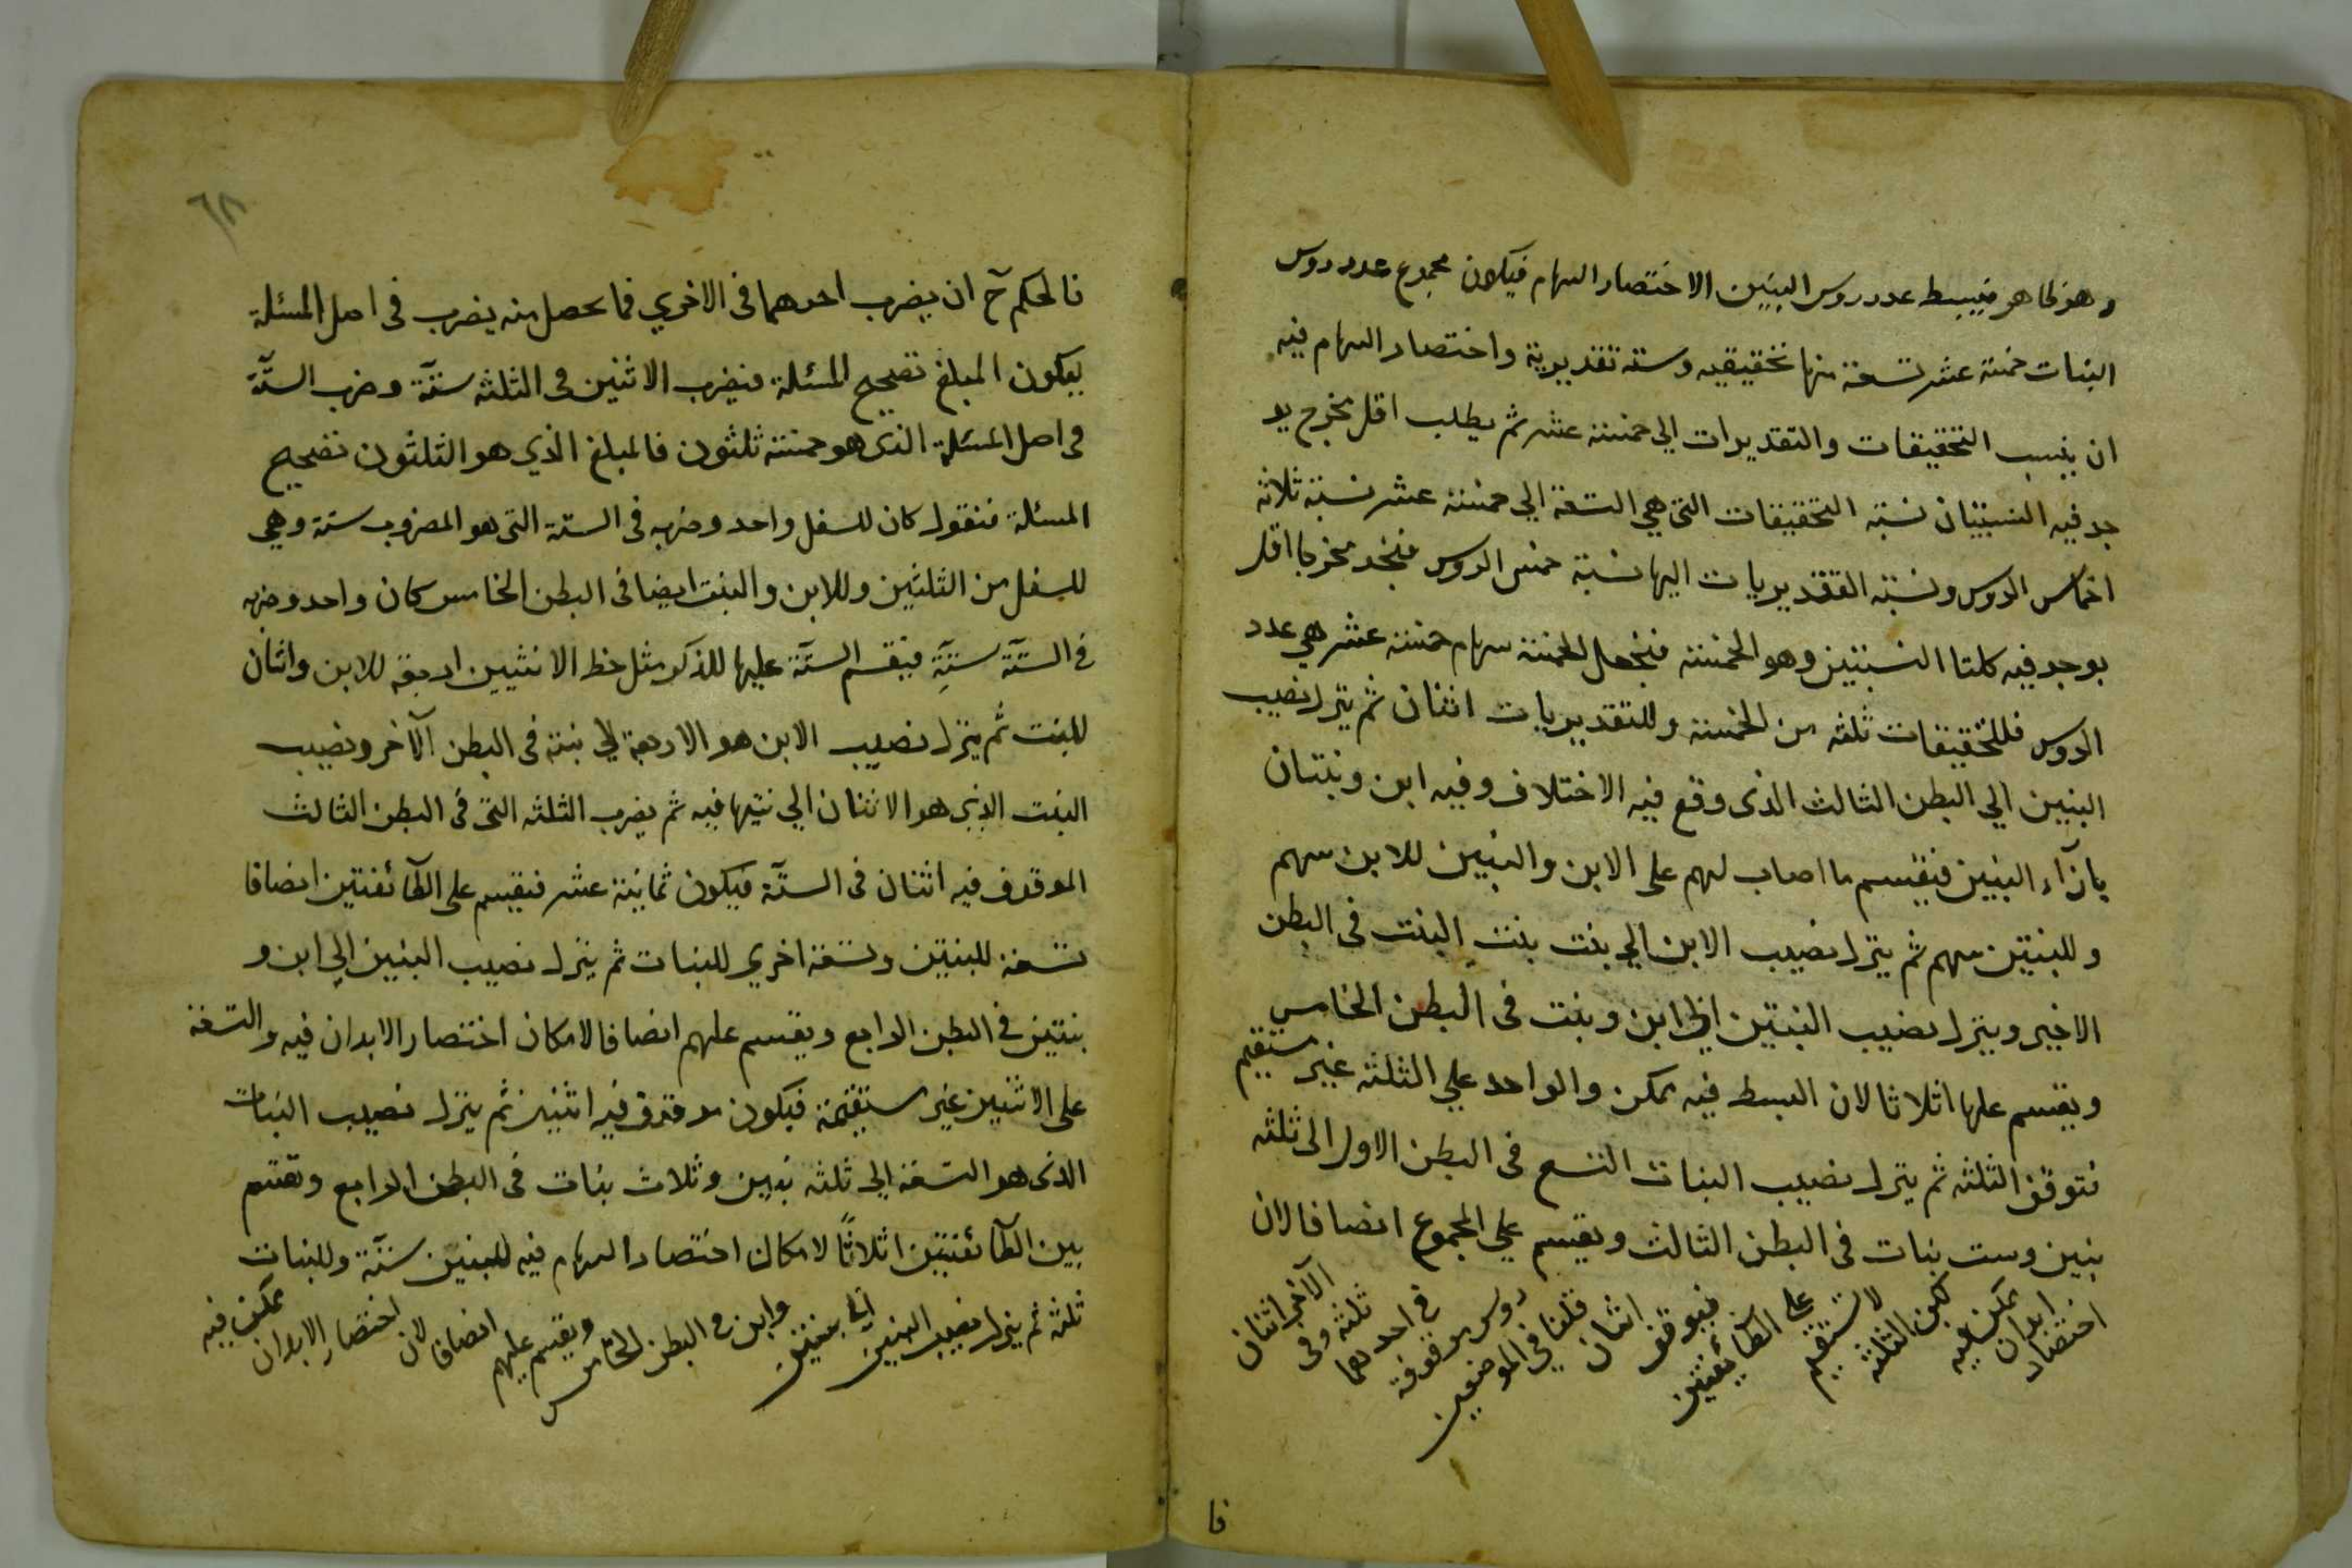 وهو ظاهر فيبسط عدد روس البنين الاختصار السهام فيكون مجموع عدد روس
البنات خمسة عشر تسعة منها تحقيقيه وستة تقديرية واختصار السهام فيه
ان ينسب التحقيقات والتقديرات الي خمسة عشر ثم يطلب اقل مخرج يو
جد فيه النسبتان نسبة التحقيقات التي هي التسعة الي خمسة عشر نسبة ثلاثة
اخماس الروس ونسبة التقديريات اليها نسبة خمس الروس فنجد مخرجا اقل
يوجد فيه كلتا النسبتين وهو الخمسة فنجعل الخمسة سهام خمسة عشر هي عدد
الروس فللتحقيقات ثلثه من الخمسة وللتقديريات اثنان ثم ينزل نصيب
البنين الي البطن الثالث الذى وقع فيه الاختلاف وفيه ابن وبنتان
بازآء البنين فيقسم ما اصاب لهم على الابن والبنتين للابن سهم
وللبنتين سهم ثم ينزل نصيب الابن الي بنت بنت البنت فى البطن
الاخير وينزل نصيب البنتين الي ابن وبنت فى البطن الخامس
ويقسم عليها اثلاثا لان البسط فيه يمكن والواحد علي الثلثه غير مستقيم
فتوقف الثلثه ثم ينزل نصيب البنات التسع فى البطن الاول الى ثلثه
بنين وست بنات فى البطن الثالث ويقسم علي المجموع انصافا لان
اختصار ابدان يمكن فيه لكن الثلثه لا تستقيم على الطآئفتين فيوقف اثنان قلنا في الموضعين روس موقوفة في احدهما ثلثه وفى الآخر اثنان
فا
٦٨
فالحكم ح ان يضرب احدهما فى الاخري فما يحصل منه يضرب فى اصل المسئلة
ليكون المبلغ تصحيح المسئلة فيضرب الاثنين فى الثلثه ستة وضرب الستة
فى اصل المسئلة الذى هو خمسة ثلثون فالمبلغ الذي هو الثلثون تصحيح
المسئلة فنقول كان للسفل واحد وضربه فى الستة التى هو المضروب ستة وهي
للسفل من الثلثين وللابن والبنت ايضا فى البطن الخامس كان واحد وضربه
في الستة ستة فيقسم الستة عليها للذكر مثل حظ الانثيين اربعة للابن واثنان
للبنت ثم ينزل نصيب الابن هو الاربعة الي بنته فى البطن الآخر ونصيب
البنت الذي هو الاثنان الي بنتها فيه ثم يضرب الثلثه التى فى البطن الثالث
الموقوف فيه اثنان فى الستة فيكون ثمانية عشر فيقسم على الطآئفتين انصافا
تسعة للبنتين وتسعة اخري للبنات ثم ينزل نصيب البنين الي ابن و
بنتين في البطن الرابع ويقسم عليهم انصافا لامكان اختصار الابدان فيه والتسعة
على الاثنين غير مستقيمة فيكون موقوف فيه اثنين ثم ينزل نصيب البنات
الذى هو التسعة الي ثلثه بنين وثلاث بنات فى البطن الرابع وتقسم
بين الطآئفتين اثلاثًا لامكان اختصار السهام فيه للبنين ستة وللبنات
ثلثة ثم ينزل نصيب البنين الي بنتين وابن في البطن الخامس ويقسم عليهم انصافا لان اختصار الابدان يمكن فيه